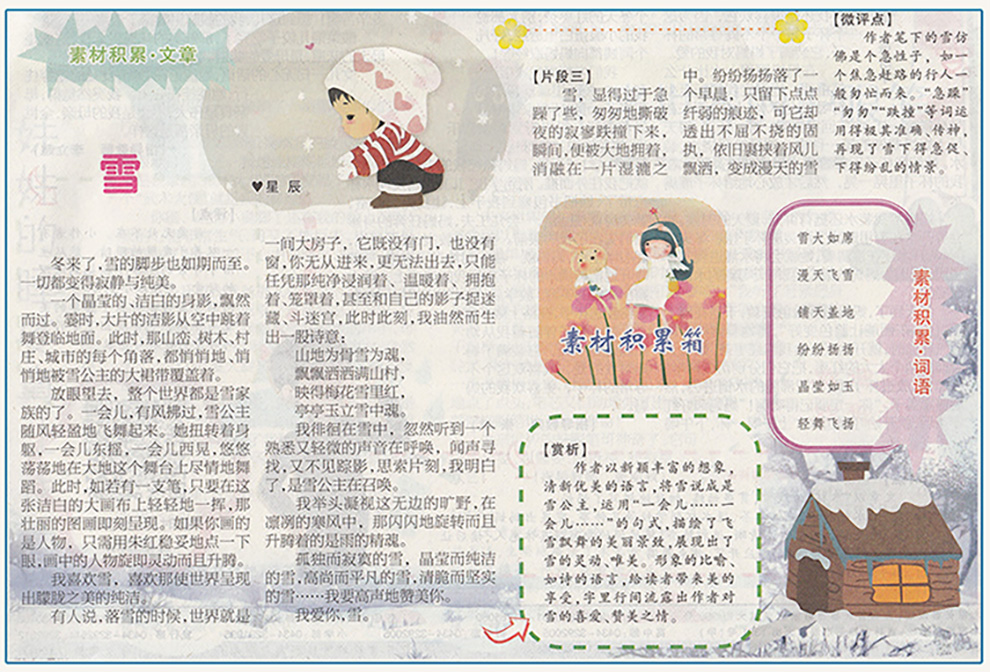 素材积累·文章
雪
♥星 辰
冬来了，雪的脚步也如期而至。
一切都变得寂静与纯美。
一个晶莹的、洁白的身影，飘然
而过。霎时，大片的洁影从空中跳着
舞登临地面。此时，那山峦、树木、村
庄、城市的每个角落，都悄悄地、悄
悄地被雪公主的大裙带覆盖着。
放眼望去，整个世界都是雪家
族的了。一会儿，有风拂过，雪公主
随风轻盈地飞舞起来。她扭转着身
躯，一会儿东摇，一会儿西晃，悠悠
荡荡地在大地这个舞台上尽情地舞
蹈。此时，如若有一支笔，只要在这
张洁白的大画布上轻轻地一挥，那
壮丽的图画即刻呈现。如果你画的
是人物，只需用朱红稳妥地点一下
眼，画中的人物旋即灵动而且升腾。
我喜欢雪，喜欢那使世界呈现
出朦胧之美的纯洁。
有人说，落雪的时候，世界就是
一间大房子，它既没有门，也没有
窗，你无从进来，更无法出去，只能
任凭那纯净浸润着、温暖着、拥抱
着、笼罩着，甚至和自己的影子捉迷
藏、斗迷宫，此时此刻，我油然而生
出一股诗意：
山地为骨雪为魂，
飘飘洒洒满山村，
映得梅花雪里红，
亭亭玉立雪中魂。
我徘徊在雪中，忽然听到一个
熟悉又轻微的声音在呼唤，闻声寻
找，又不见踪影，思索片刻，我明白
了，是雪公主在召唤。
我举头凝视这无边的旷野，在
凛冽的寒风中，那闪闪地旋转而且
升腾着的是雨的精魂。
孤独而寂寞的雪，晶莹而纯洁
的雪，高尚而平凡的雪，清脆而坚实
的雪……我要高声地赞美你。
我爱你，雪。
【片段三】
雪，显得过于急
躁了些，匆匆地撕破
夜的寂寥跌撞下来，
瞬间，便被大地拥着，
消融在一片湿漉之
中。纷纷扬扬落了一
个早晨，只留下点点
纤弱的痕迹，可它却
透出不屈不挠的固
执，依旧裹挟着风儿
飘洒，变成漫天的雪
【微评点】
作者笔下的雪仿
佛是个急性子，如一
个焦急赶路的行人一
般匆忙而来。“急躁”
“匆匆”“跌撞”等词运
用得极其准确、传神，
再现了雪下得急促、
下得纷乱的情景。
素材积累箱
雪大如席
漫天飞雪
铺天盖地
纷纷扬扬
晶莹如玉
轻舞飞扬
素材积累·词语
【赏析】
作者以新颖丰富的想象，
清新优美的语言，将雪说成是
雪公主，运用“一会儿……一
会儿……”的句式，描绘了飞
雪飘舞的美丽景致，展现出了
雪的灵动、唯美。形象的比喻、
如诗的语言，给读者带来美的
享受，字里行间流露出作者对
雪的喜爱、赞美之情。